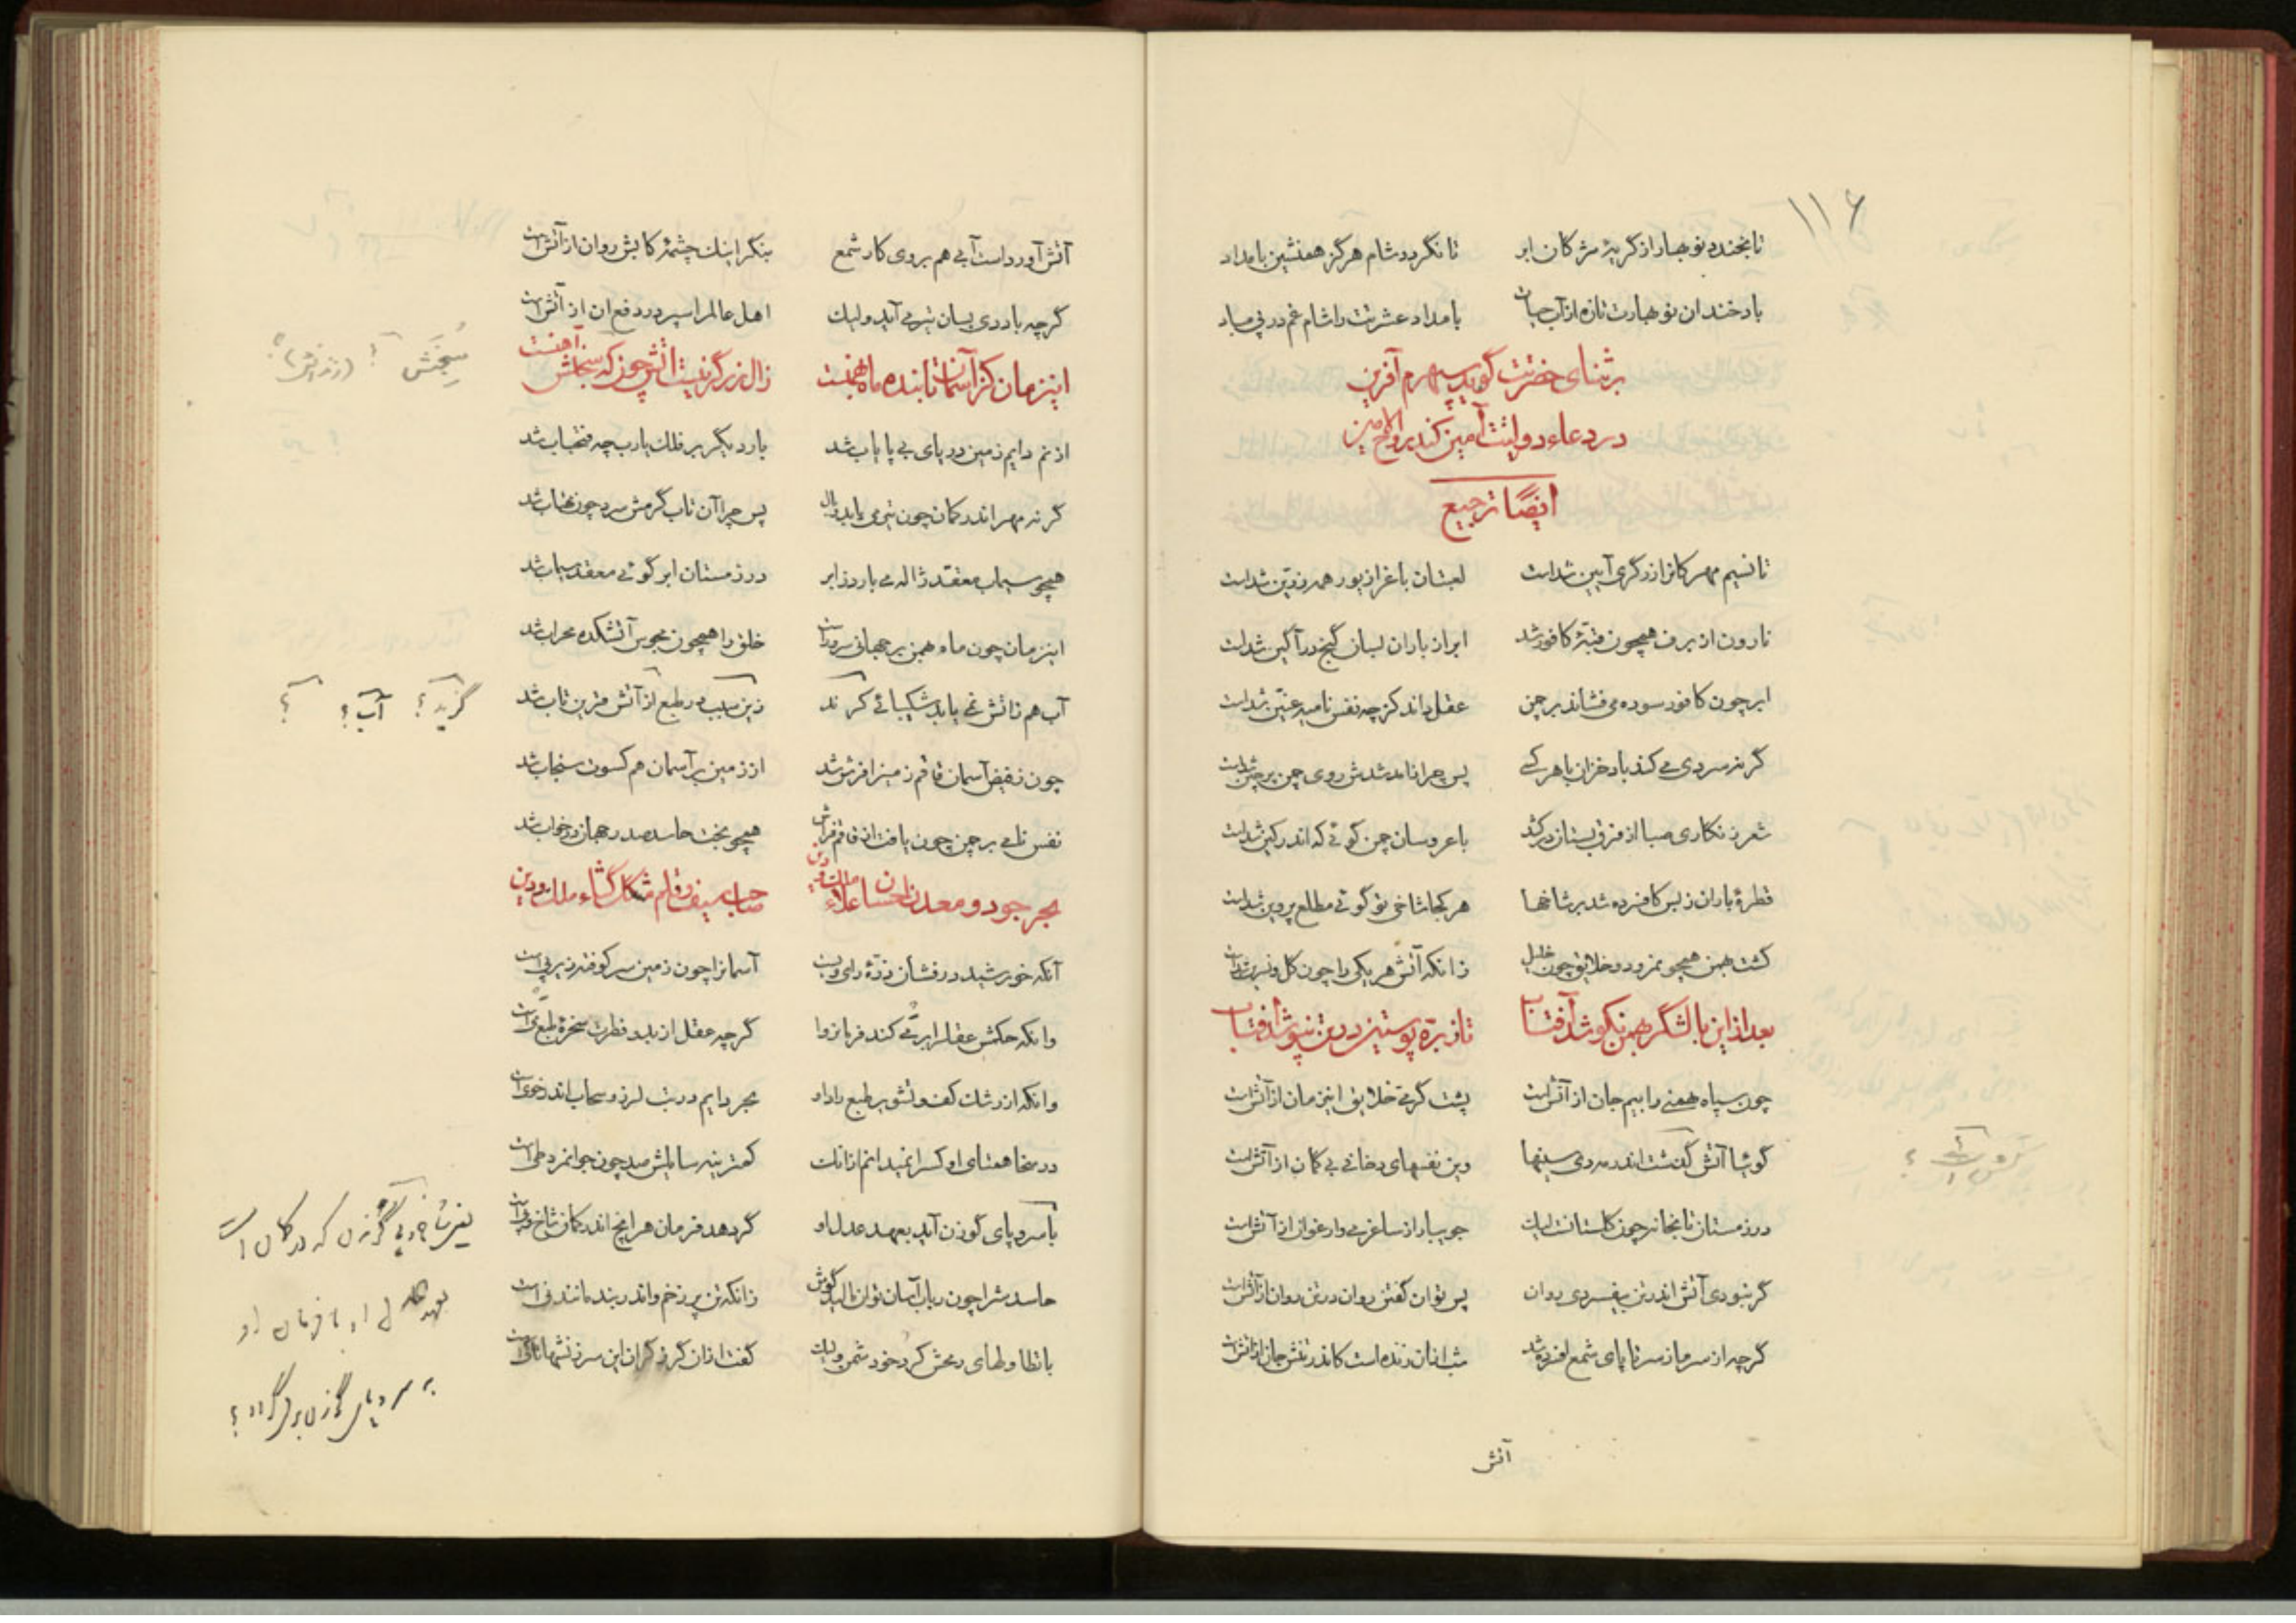 ۱۱۶
تا نخندد نوبهار از گریهٔ مژگان ابر تا نگردد شام هرگز همنشین بامداد
باد خندان نوبهارت تازه از آب حیات بامداد عشرتت را شام غم در پی مباد
بر ثنای حضرتت گوید سپهرم آفرین
در دعاء دولتت آمین کند روح الامین
ایضًا ترجیع
تا نسیم مهرکان از زرگری آیین شداست لعبتان باغ را زیور همه زرین شداست
نارون از برف همچون قبهٔ کافور شد ابر از باران بسان گنج در آگین شداست
ابر چون کافور سوده می فشاند بر چمن عقل داند کز چه نفس نامیه عنین شداست
گر نه سردی می کند باد خزان با هر کسی پس چرا نامد شدش روی چمن پر چین شداست
شعر زنگاری صبا از فرق بستان در کشد با عروسان چمن گوئی که اندر کین شداست
قطرهٔ باران ز بس کافسرده شد بر شاخها هر کجا شاخی تو گوئی مطلع پروین شداست
گشت بهمن همچو نمرود و خلایق چون خلیل زانکه آتش هر یکی را چون گل و نسرین شداست
بعد از این با لشگر بهمن نکوشد آفتاب تا ز بره پوستین در تن نپوشد آفتاب
چون سپاه بهمنی را بیم جان از آتش است پشت گرمی خلایق این زمان از آتش است
گوئیا آتش گذشت اندر مه دی سینها وین نفسهای دخانی بی گمان از آتش است
در زمستان تابخانه چون گلستانست لیک جویبار از ساغر می وارغوان از آتش است
گر نبودی آتش اندر تن بیفسردی روان پس توان گفتن روان در تن روان از آتش است
گرچه از سرما ز سر تا پای شمع افسرده شد شب از آن زنده است کاندر تنش جان از آتش است
آتش
آتش آورداست آبی هم بروی کار شمع بنگر اینك چشمهٔ کابش روان از آتش است
گرچه باد دی بسان تیر می آید ولیك اهل عالم را سپر در دفع آن از آتش است
این زمان کز آسمان تابنده ماه بهمنست زال زر گر نیست آتش چون که سنجابش
از نم دایم زمین دریای بی پایاب شد بار دیگر بر فلك یارب چه فتح باب شد
گر نه مهر اندر کمان چون تیر می یابد وبال پس چرا آن تاب گرمش سرد چون مهتاب شد
همچو سیماب معقد ژاله می بارد ز ابر در زمستان ابر گوئی معقد سیماب شد
این زمان چون ماه بهمن بر جهانی سرور است خلق را همچون مجوس آتشکده محراب شد
آب هم زاتش نمی یابد شکیبائی کر ند زین سبب در طبع از آتش قرین تاب شد
چون ز فیض آسمان قاقم زمین را فرش شد از زمین بر آسمان هم کسوت سنجاب شد
نفس نامی بر چمن چون یافت از قاقم فراش همچو بخت حاسد صدر جهان در خواب شد
بحر جود و معدن احسان علاء ملك و دین صاحب سیف و قلم مشکل گشاء ملك و دین
آنکه خورشید درفشان ذرهٔ رای ویست آسمان را چون زمین سر کوفته زیر پی است
وانکه حکمش عقل را بر می کند فرمانروا گرچه عقل از بدو فطرت سخرهٔ طبع می است
وانکه از رشك کف و تشویر طبع راد او بحر دایم در تب لرز و سحاب اندر خوی است
در سخا همتای او کس را نمیدانم از انك کمترینه سایلش صد چون جوانمرد طی است
با سرو پای گوزن آید بعهد عدل او گر دهد فرمان هر آنچ اندر کمان شاخ و پی است
حاسدش را چون رباب آسان توان مالید گوش زانکه تن پر زخم و اندر بند مانند نی است
گفت از آن گرز گران این سرزنشها تا کی است
سنجش ؟
گزید؟ آب؟ ؟
یعنی شاخ و پی گوزن که در کمان است
بعهد عدل او با فرمان او
به سر و پای گوزن برمیگردد؟